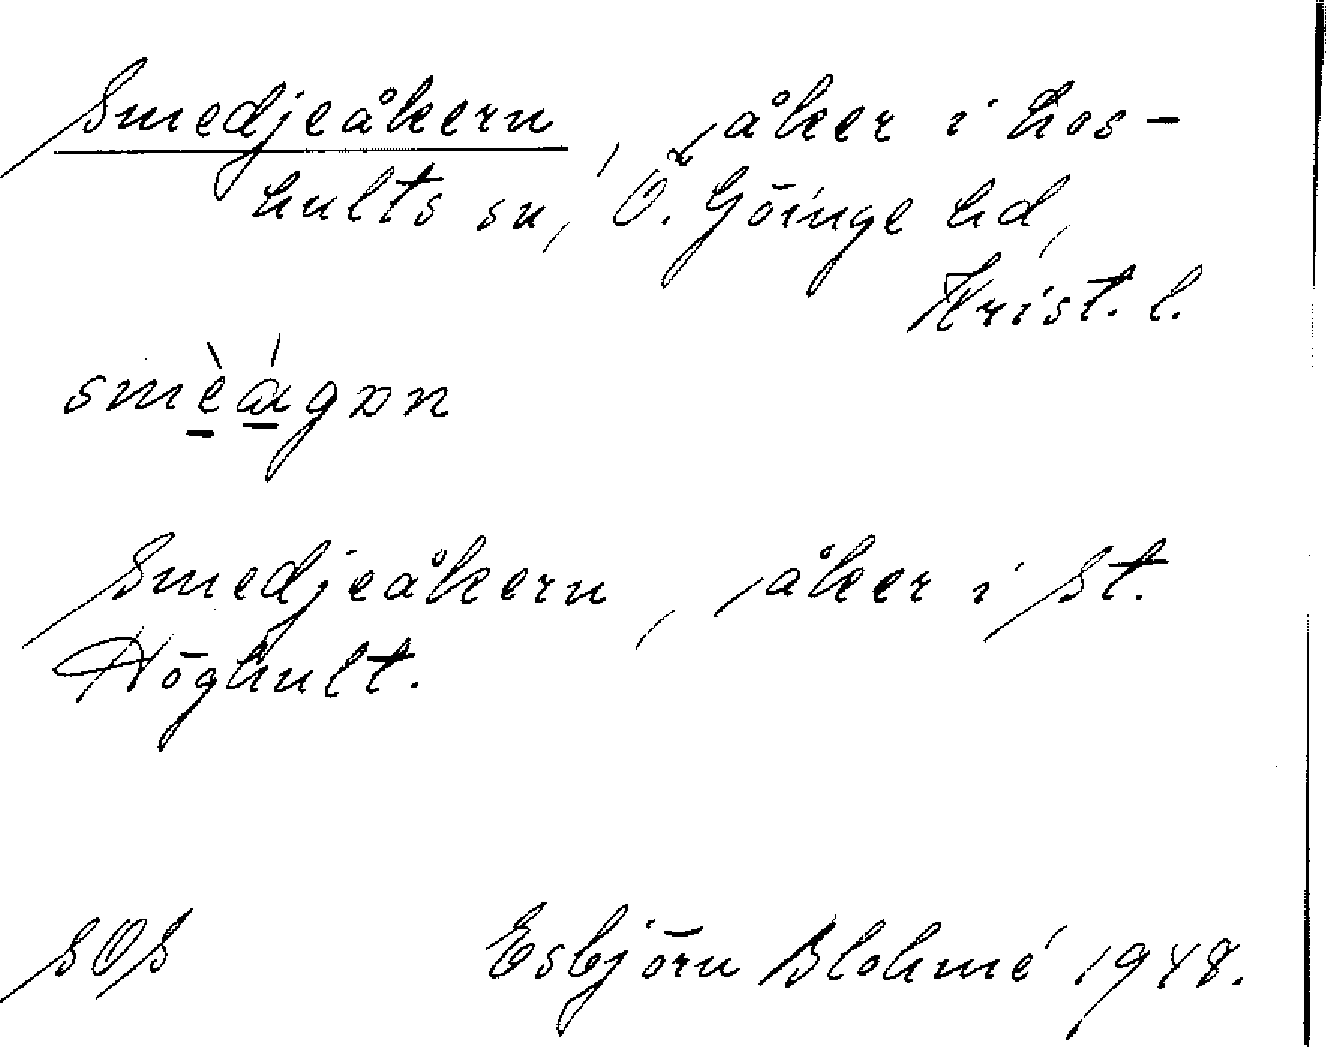 Smedjeåkern, åker i Los-
hults sn, Ö. Göinge hd,
Krist. l.
smèágən
Smedjeåkern, åker i St.
Höghult.
SOS Esbjörn Blohmé 1948.